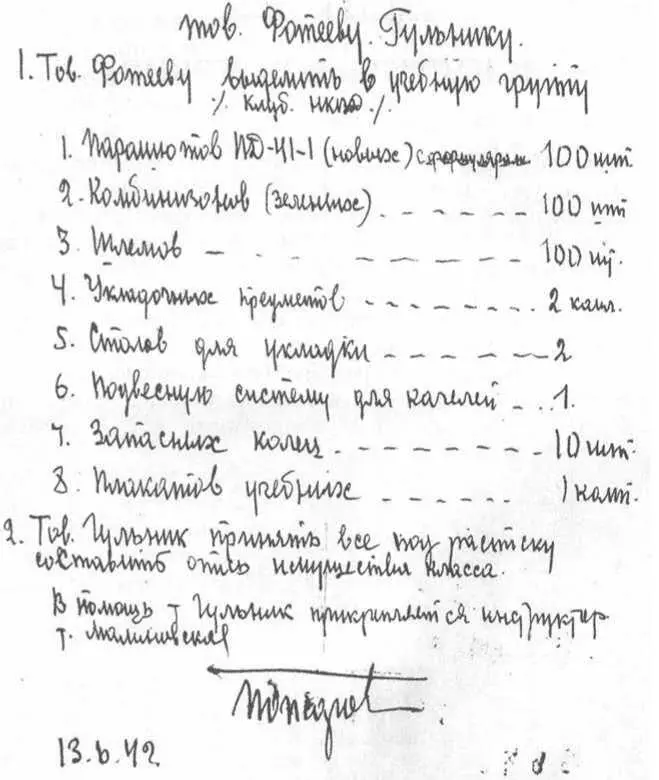 тов. Фотееву. Гульнику.
1. Тов. Фотееву выделить в учебную группу
% клуб. НКВД %
1. Парашютов ПД-41-1 (новых) с формулярами 100 шт
2. Комбинизонов (зеленых) - - - - - - 100 шт
3. Шлемов - - - - - - - - 100 шт.
4. Укладочных предметов - - - - - - - 2 компл.
5. Столов для укладки - - - - - - 2
6. Подвесную систему для качелей - .. 1.
7. Запасных колец - - - - - - - - 10 шт.
8. Плакатов учебных - - - - - - 1 компт.
2. Тов. Гульник принять все под расписку
составить опись имущества класса.
В помощь т Гульник прикрепляется инструктор
т. Малиновская
13.6.42